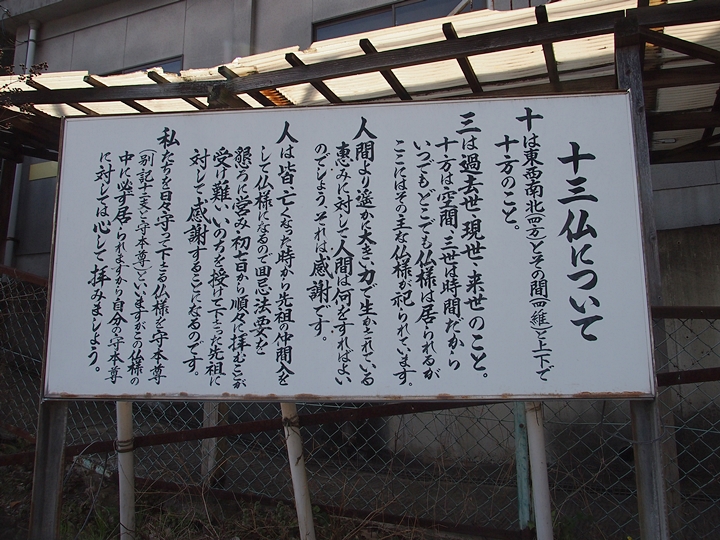 十三仏について
十は東西南北(四方)とその間(四維)と上下で
十方のこと。
三は過去世・現世・来世のこと。
十方は空間、三世は時間だから
いつでもどこでも仏様は居られるが
ここにはその主な仏様が祀られています。
人間より遥かに大きい力で生かされている
恵みに対して人間は何をすればよい
のでしょう。それは感謝です。
人は皆亡くなった時から先祖の仲間入を
して仏様になるので回忌法要を
懇ろに営み初七日から順々に拝むことが
受け難いいのちを授けて下さった先祖に
対して感謝することになるのです。
私たちを日々守って下さる仏様を守本尊
(別記十二支と守本尊)といいますがこの仏様の
中に必ず居られますから自分の守本尊
に対しては心して拝みましょう。